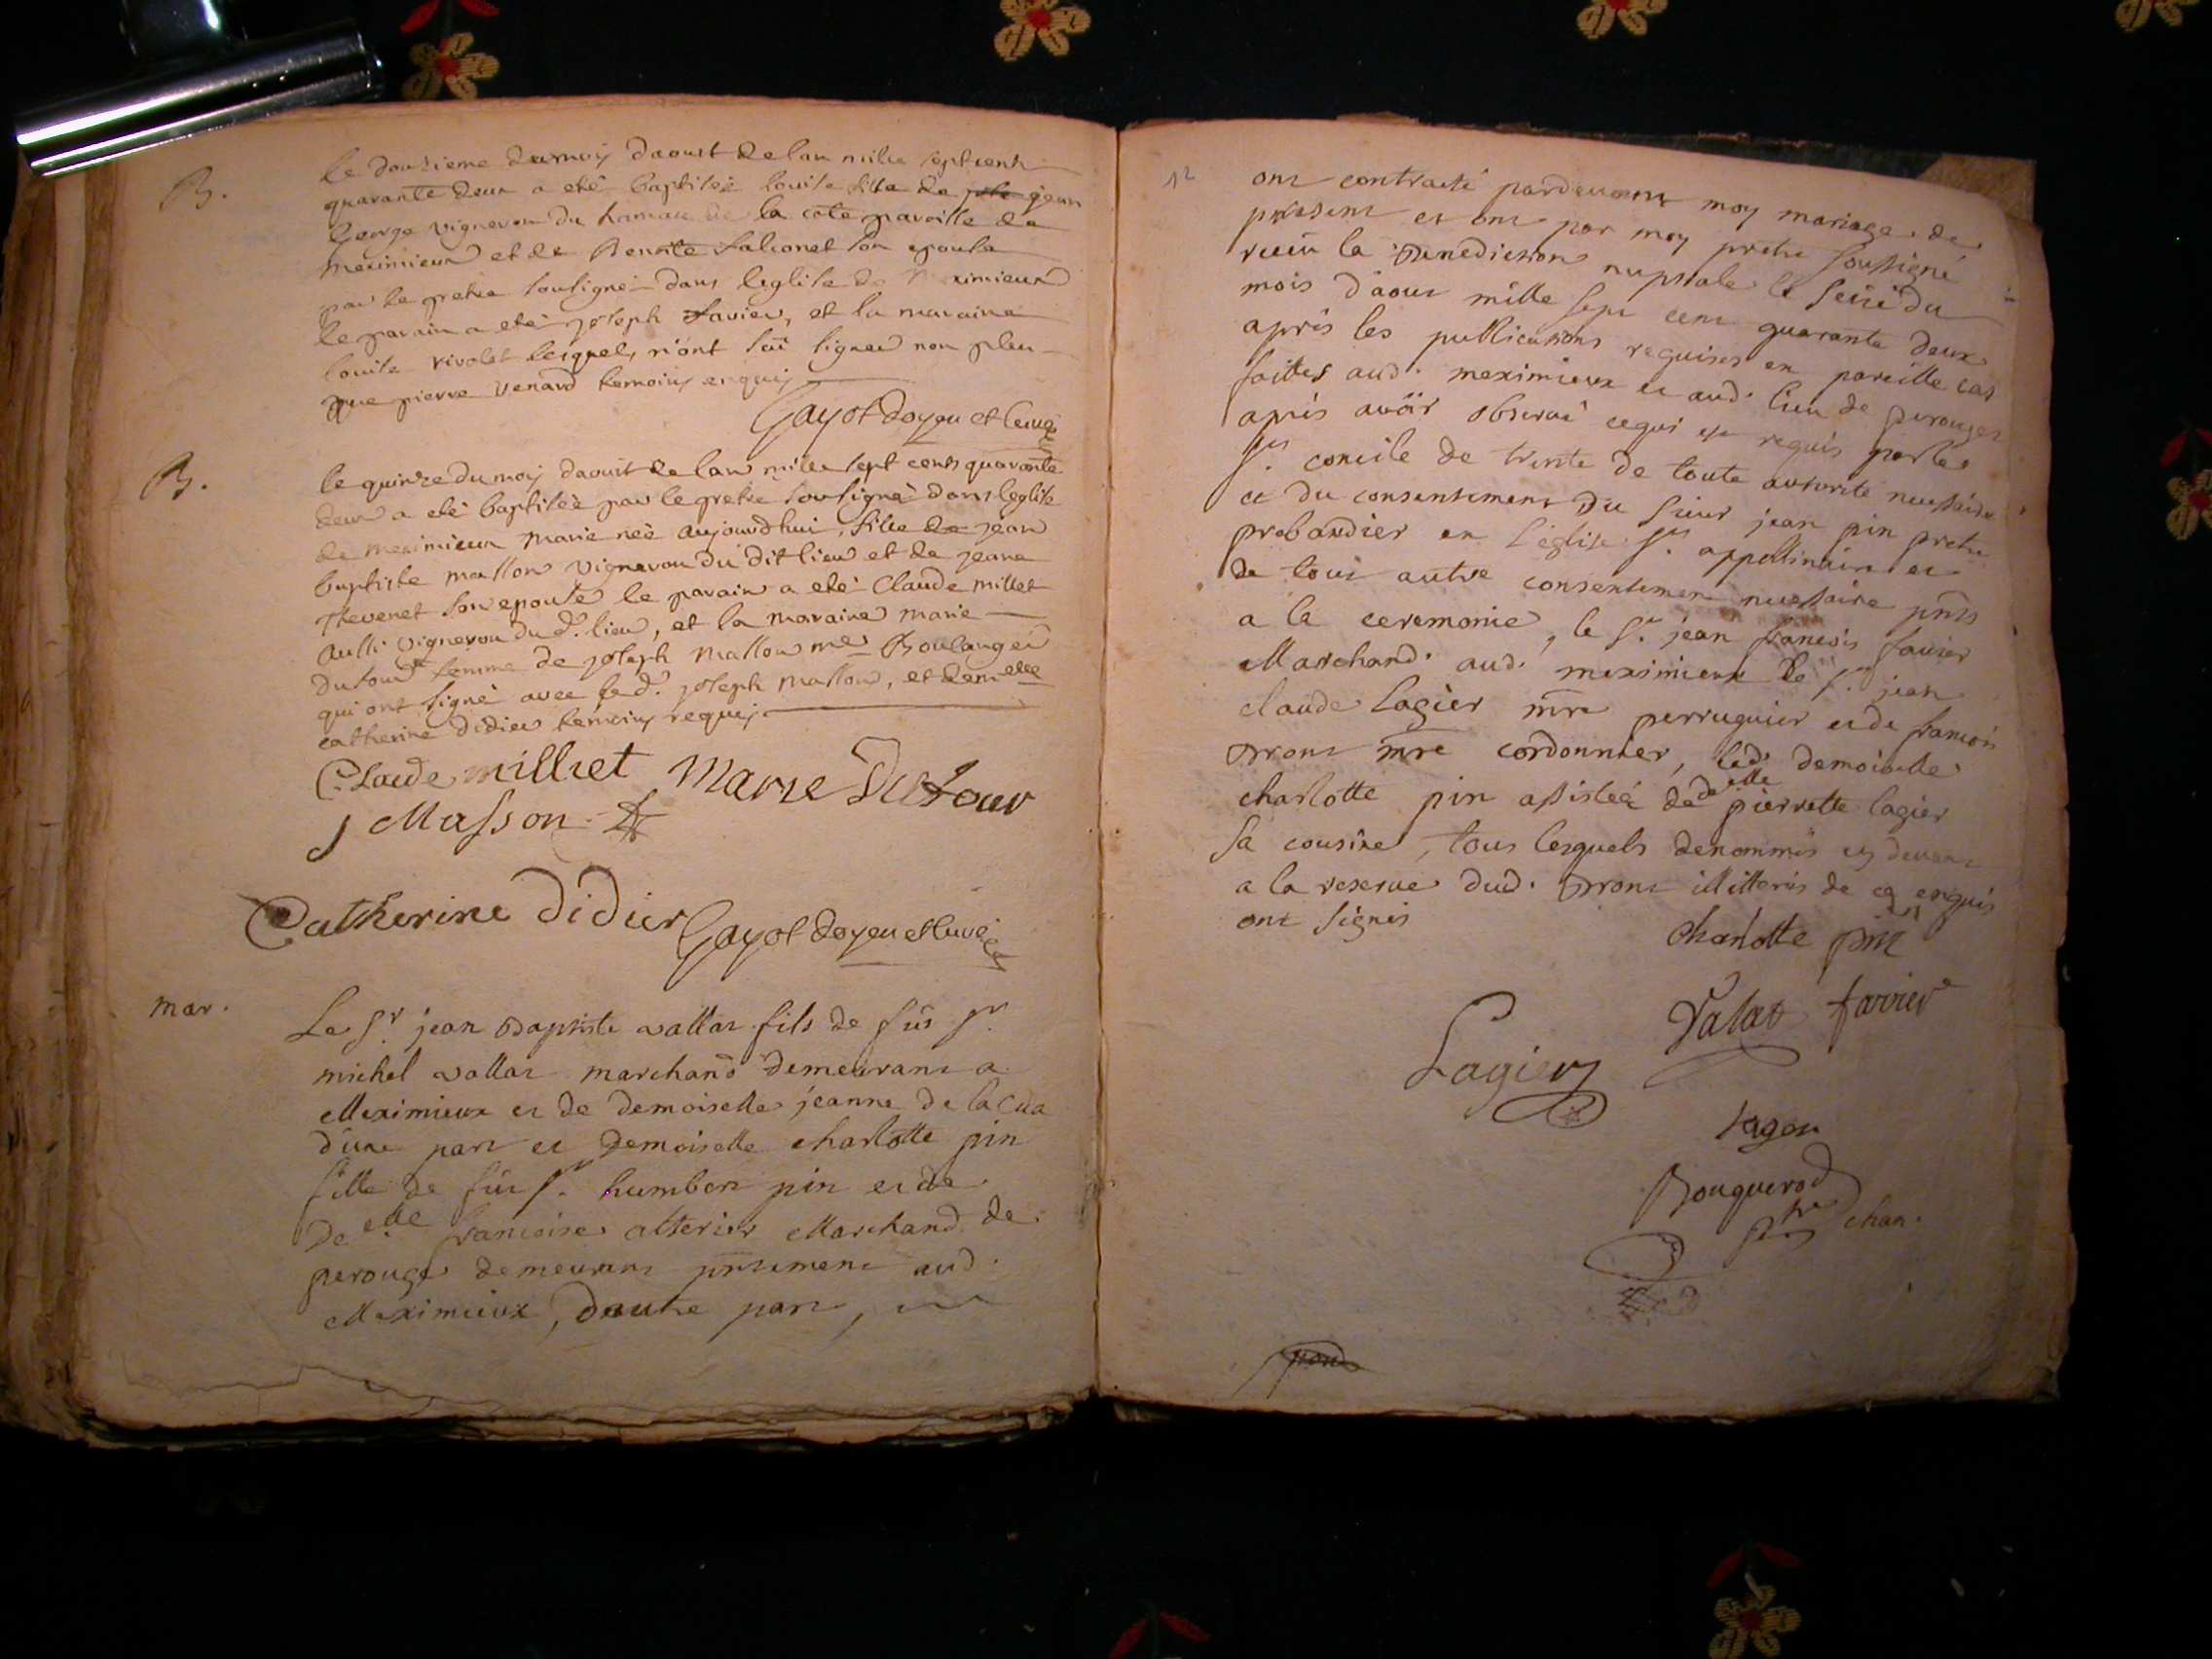 B.
le douzieme dumoy daoust de lan mille sept cents
quarante deux a eté baptisée louise fille de jean
George vigneron du hameau de la côte paroisse de
meximieux et de Benoite falconet son epouse
par le pretre soussigné dans leglise de Meximieux
le parain a eté joseph favier, et la maraine
louise rivolet lesquels n'ont sçû signer non plus
que pierre venard temoins enquis
Gayot doyen et curé
B.
le quinze du moy daoust de lan mille sept cents quarante
deux a eté baptisée par le pretre soussigné dans leglise
de meximieux marie née aujourdhui, fille de jean
baptiste masson vigneron du dit lieu et de jeane
Thevenet son epouse le parain a eté Claude millet
aussi vigneron du d. lieu, et la maraine marie
dutour femme de joseph masson me Boulanger
qui ont signé avec led. joseph masson, et demelle
catherine didier temoins requis
Claude milliet Marie Dutour
j Masson
Catherine didier Gayot doyen et curé
mar.
Le sr. jean Baptiste vallat fils de fût sr.
michel vallat marchand demeurant a
Meximieux et de demoiselle jeanne de la
d'une part et demoiselle charlotte pin
fille de fut sr. humbert pin et de
delle francoise alterier Marchand de
perouge demeurant pntement aud.
Meximieux, dautre part,
12
ont contracté pardevant moy mariage de
present et ont par moy pretre soussigné
recû la Benediction nuptiale le seize du
mois d'aout mille sept cent quarante deux
après les publications requises en pareille cas
faittes aud. meximieux et aud. lieu de perouges
après avoir observé cequi est requis parle
st. concile de trente de toute autorité necessaire
et du consentement du sieur jean pin pretre
probandier en l'église st. appollinaire et
de tout autre consentement necessaire pnts
a la ceremonie, le sr. jean francois favier
Marchand aud. meximieux le sr. jean
claude Lagier mre perruquier et de francois
Pront mre cordonnier, lad. demoiselle
charlotte pin assistée de delle pierrette lagier
sa cousine, tous lesquels denommés cy devant
a la reserve dud. Pront illitterés de ce enquis
ont signés
charlotte pin
Valat favier
Lagier
Bouquerod
ptre chan.